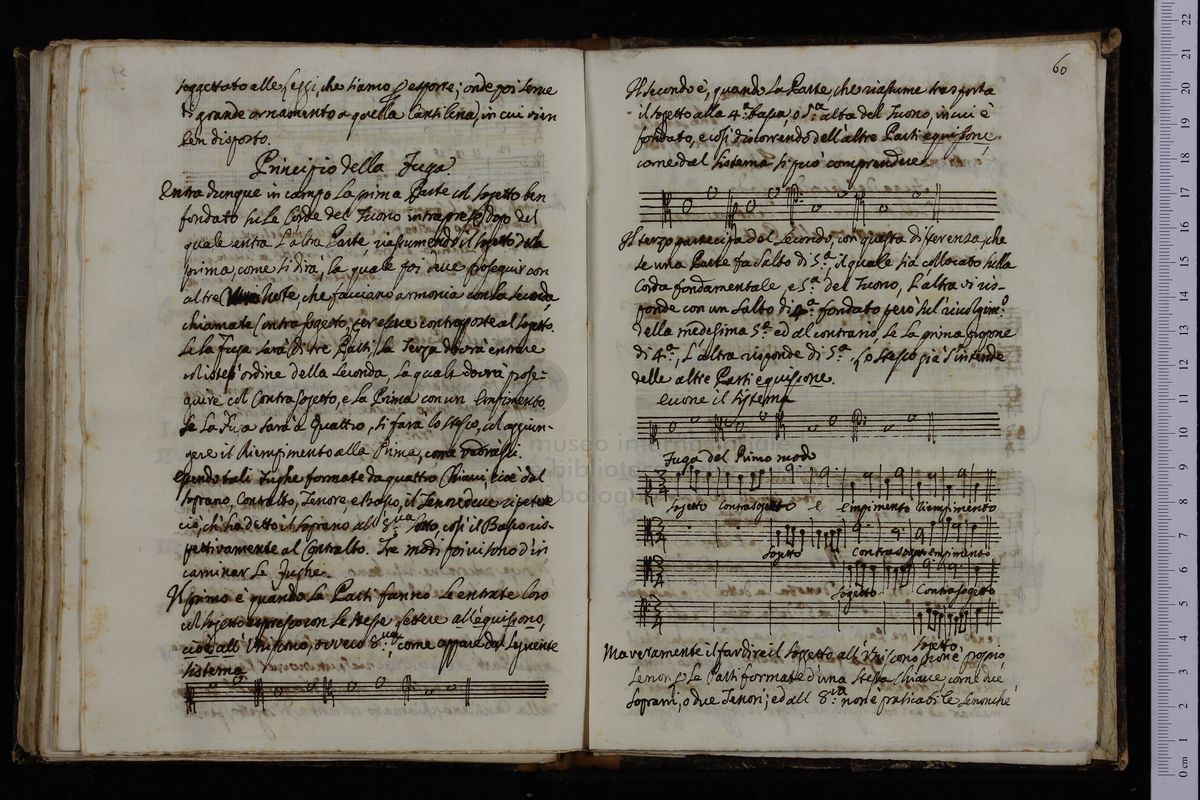 soggettato alle Leggi, che siamo p esporre; onde poi serve
di grande ornamento a quella Cantilena, in cui vien
ben disposto.
Principio della Fuga.
Entra dunque in campo la prima Parte col sogetto ben
fondato su le Corde del Tuono intrapreso dopo del
quale entra l'altra Parte riassumendo il sogetto della
prima, come si dirà, la quale poi deve proseguir con
altre Note, che facciano armonia con la seconda,
chiamate Contrasogetto, per esser contrapposte al sogetto.
Se la Fuga sarà di tre Parti, la Terza dovrà entrare
ordine della seconda, la quale dovrà prose-
guire col Contrasogetto, e la Prima con un Empimento.
Se la Fuga sarà a Quattro, si farà lo stesso, col aggiun-
gere il Riempimento alla Prima, come vedrassi.
Essendo tali Fughe formate da quattro Chiavi, cioè dal
Soprano, Contralto, Tenore, e Basso, il Tenore deve ripetere
ciò, ch'hà detto il Soprano all' 8.va sotto, così il Basso ris-
pettivamente al Contralto. Tre modi poi vi sono d'in
caminar le Fughe.
Il primo è quando le Parti fanno le entrate loro
col sogetto espresso con le stesse lettere all'equisono,
cioè all'Unisono, ovvero 8.va come appare dal seguente
sistema
60
Il secondo è, quando la Parte, che riassume trasporta
il sogetto alla 4.a bassa, o 5.a alta del Tuono, in cui è
fondato, e così discorrendo dell'altre Parti equisone
come dal sistema si può comprendere.
Il terzo partecipa dal secondo, con questa diferenza, che
se una Parte fa salto di 5.a, il quale sia collocato sulla
Corda fondamentale, e 5.a del Tuono, l'altra vi ris-
ponde con un salto di 4.a fondato però sul
della medesima 5.a ed al contrario, se la prima propone
di 4.a, l'altra risponde di 5.a lo stesso già s'intende
delle altre Parti equisone.
eccone il sistema
Fuga del Primo modo
Sogetto Contrasogetto e Empimento Riempimento
Sogetto Contrasogetto Empimento
Sogetto Contrasogetto
Sogetto
Ma veramente il far dire il soggetto all'Unisono non è proprio,
se non p le Parti formate d'una stessa Chiave, come due
Soprani, o due Tenori; ed all' 8.va non è praticabile, se non che
museo internazionale
e biblioteca
bologna